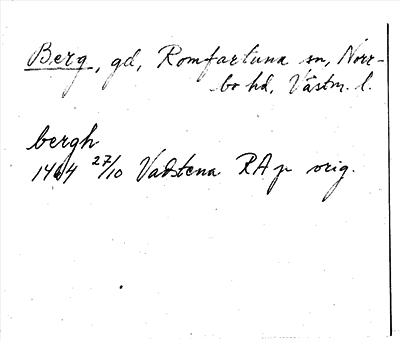 Berg, gd, Romfartuna sn, Norr-
bo hd, Västm. l.
bergh
1464 27/10 Vadstena RAp orig.